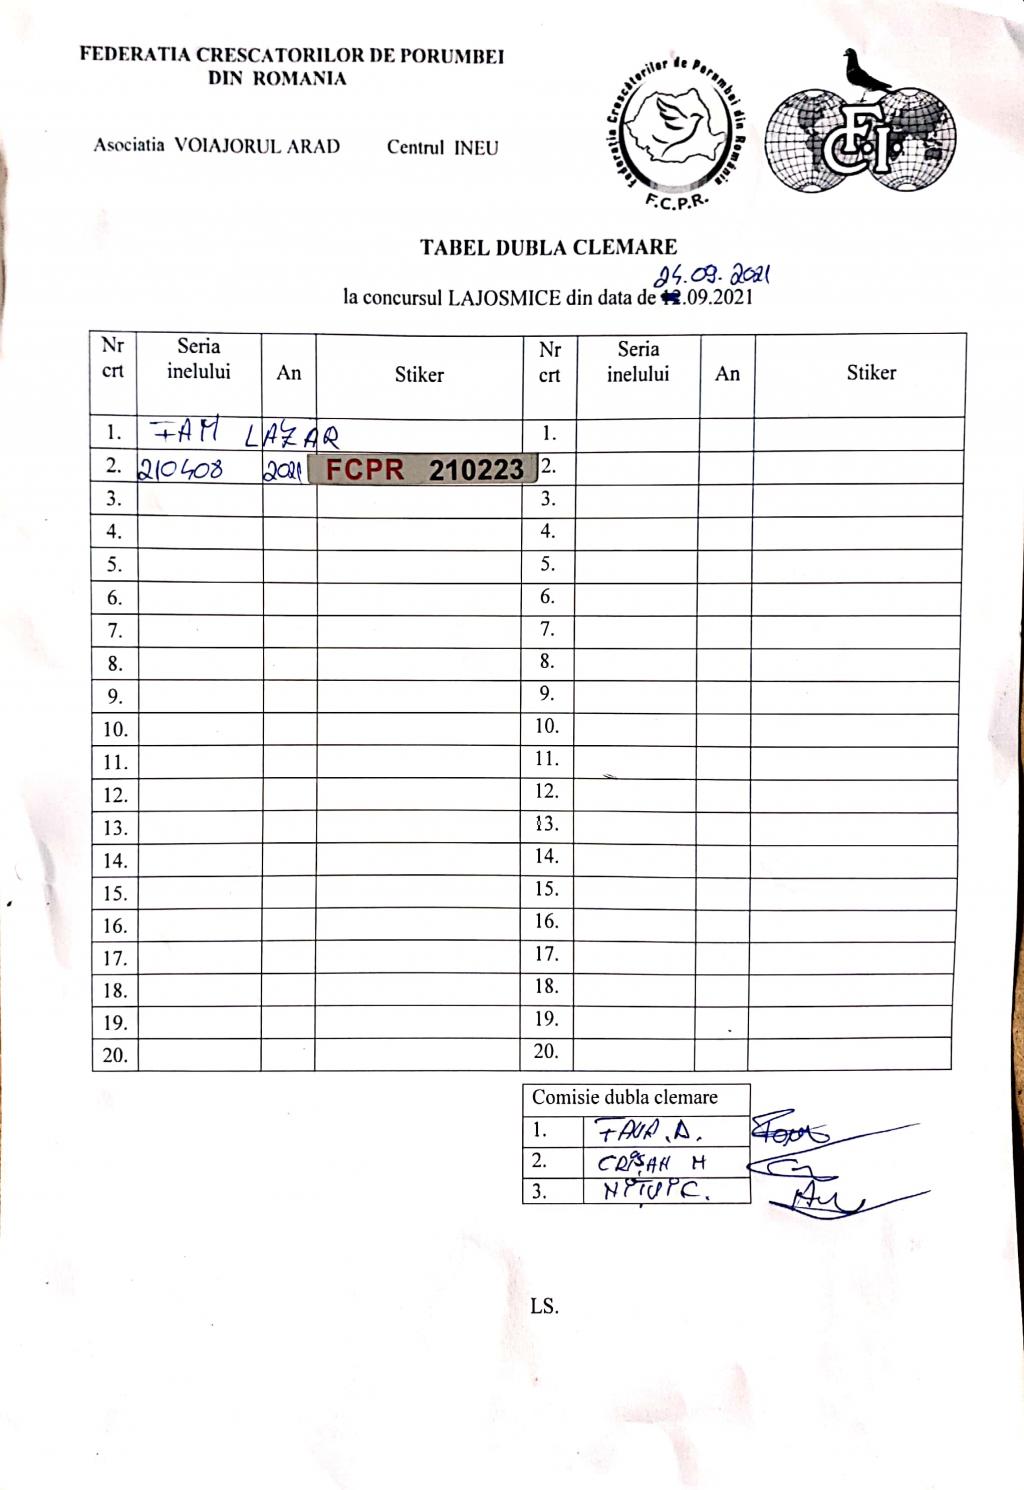 FEDERATIA CRESCATORILOR DE PORUMBEI
DIN ROMANIA
Asociatia VOIAJORUL ARAD Centrul INEU
Federatia Crescătorilor de Porumbei din România
F.C.P.R.
F.C.I.
TABEL DUBLA CLEMARE
24.09.2021
la concursul LAJOSMICE din data de 12.09.2021
Nr crt Seria inelului An Stiker Nr crt Seria inelului An Stiker
1. FAM LAZAR 1.
2. 210408 2021 FCPR 210223 2.
3. 3.
4. 4.
5. 5.
6. 6.
7. 7.
8. 8.
9. 9.
10. 10.
11. 11.
12. 12.
13. 13.
14. 14.
15. 15.
16. 16.
17. 17.
18. 18.
19. 19.
20. 20.
Comisie dubla clemare
1. FAUR. D.
2. CRIȘAN M
3. NIȚU C.
LS.